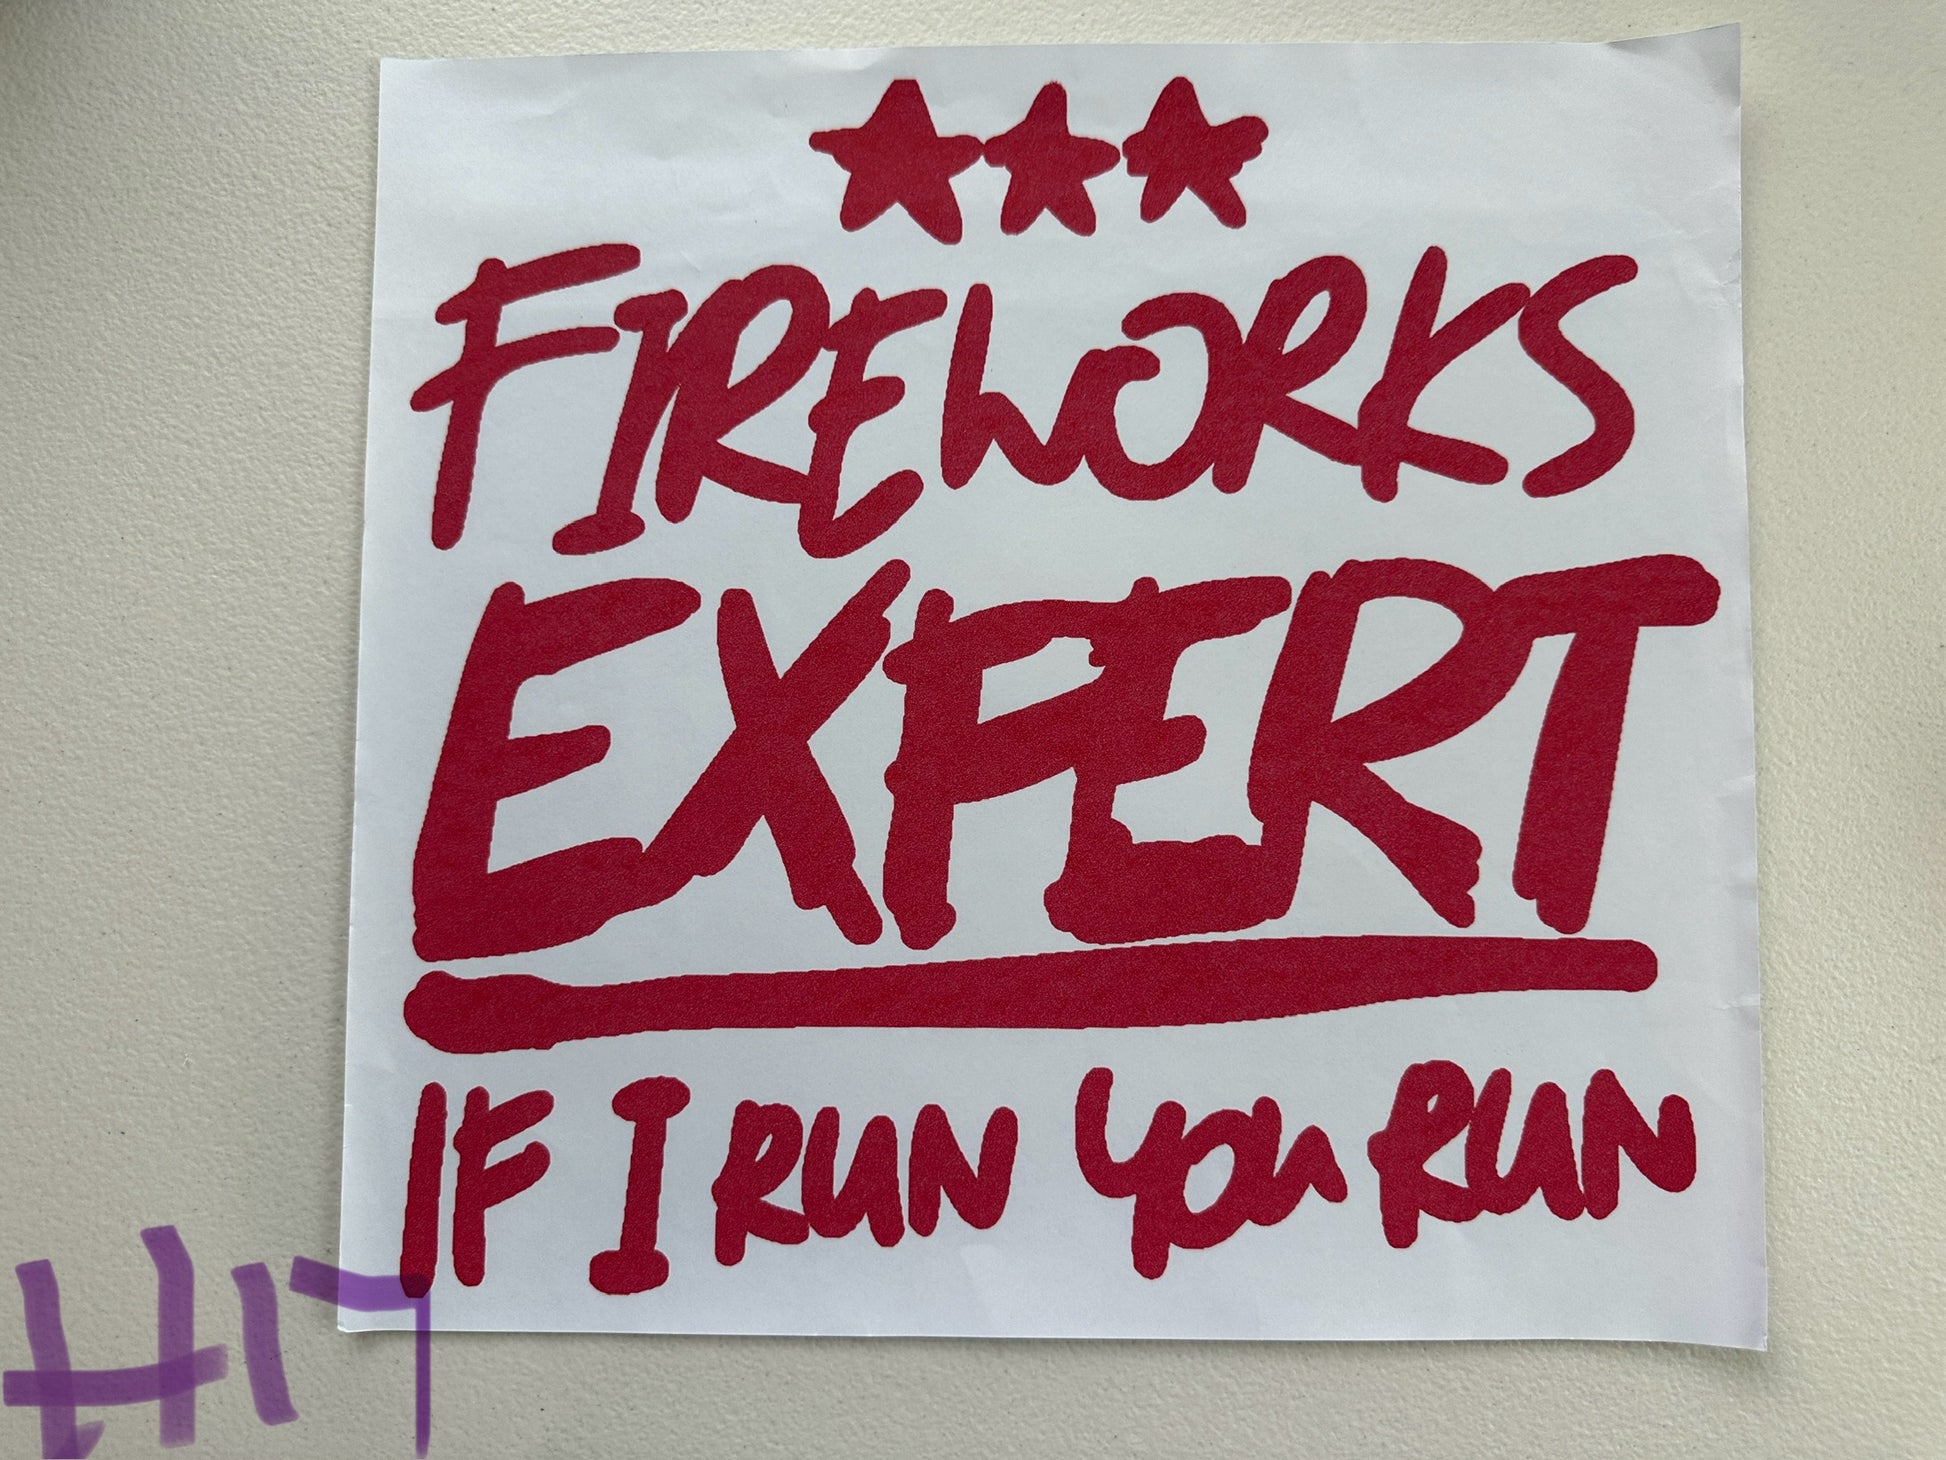 FIREWORKS
EXPERT
IF I RUN YOU RUN